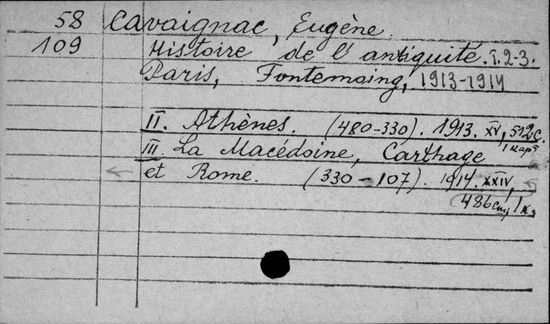 58 Cavaignac, Eugène.
109 Histoire de l'antiquité. T.2-3.
Paris, Fontemoing, 1913-1914
II. Athènes. (480-330). 1913. XV, 512 c.
1 карт
III. La Macédoine, Carthage
et Rome. (330-107). 1914. XXIV,
486 стр, 1 к.